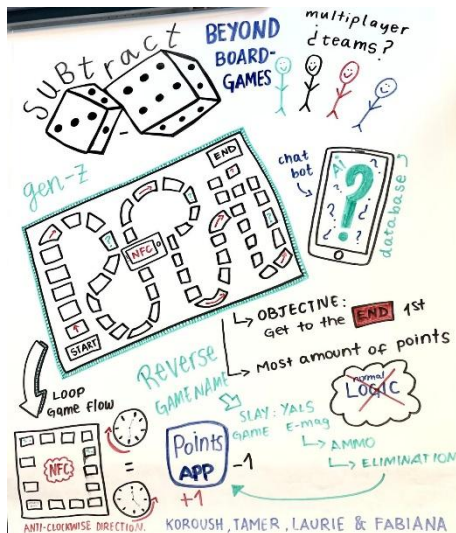 SUBtract
BEYOND
BOARD-
GAMES
multiplayer
¿teams?
gen-z
END
NFC
START
chat
bot
Ai
?
database
OBJECTIVE:
Get to the END 1st
Most amount of points
Reverse
GAME NAME
normal
LOGIC
SLAY: YALS
GAME E-mag
AMMO
ELIMINATION
LOOP
Game flow
NFC
=
Points
APP
-1
+1
ANTI-CLOCKWISE DIRECTION.
KOROUSH, TAMER, LAURIE & FABIANA